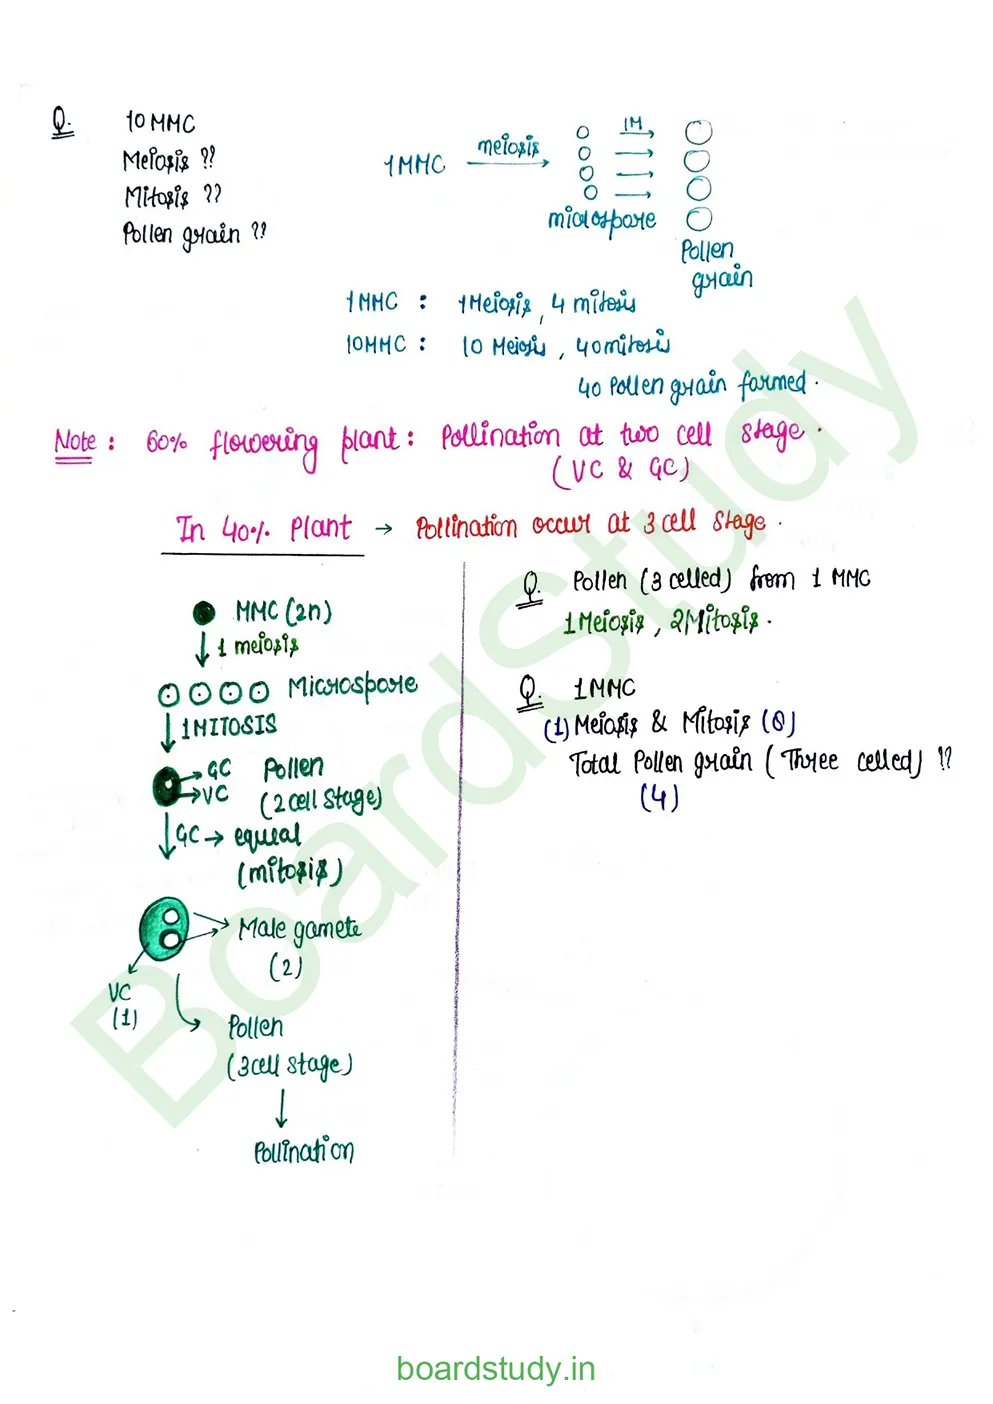 Q.
10 MMC
Meiosis ??
Mitosis ??
Pollen grain ??
1MMC meiosis 1M
microspore
Pollen
grain
1MMC : 1Meiosis, 4 mitosis
10MMC : 10 Meiosis, 40 mitosis
40 Pollen grain formed.
Note : 60% flowering plant : Pollination at two cell stage.
(VC & GC)
In 40% Plant → Pollination occur at 3 cell stage.
MMC (2n)
↓ 1 meiosis
Microspore
↓ 1MITOSIS
GC
VC
Pollen
(2 cell stage)
↓ GC → equal
(mitosis)
Male gamete
(2)
VC
(1)
Pollen
(3 cell stage)
↓
Pollination
Q. Pollen (3 celled) from 1 MMC
1Meiosis, 2Mitosis.
Q. 1MMC
(1) Meiosis & Mitosis (8)
Total Pollen grain (Three celled) !?
(4)
BoardStudy
boardstudy.in